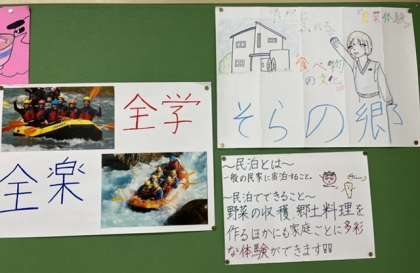 全学
全楽
野菜体験
食べ物
の文化
そらの郷
～民泊とは～
一般の民家に宿泊すること。
～民泊でできること～
野菜の収穫、郷土料理を
作るほかにも家庭ごとに多彩
な体験ができます!!